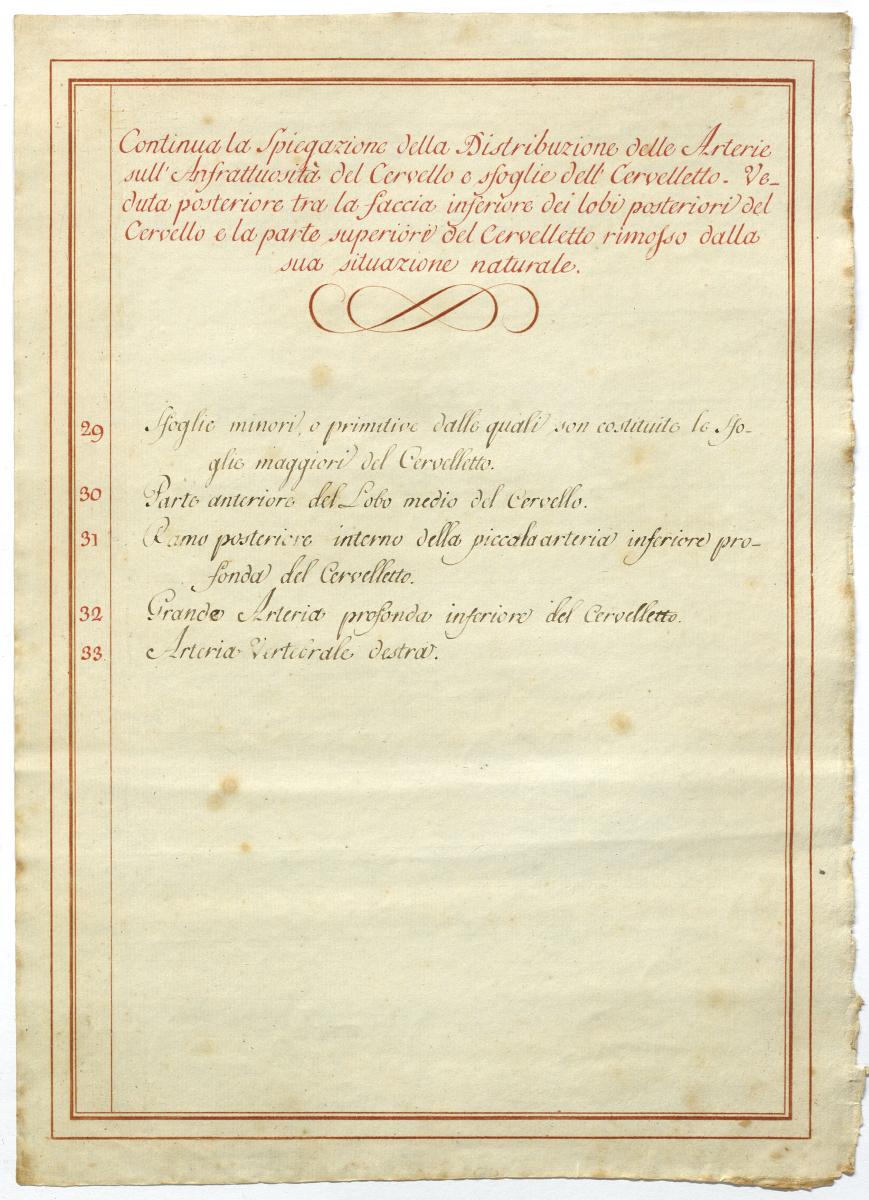 Continua la Spiegazione della Distribuzione delle Arterie
sull' Anfrattuosità del Cervello e sfoglie dell' Cervelletto. Ve-
duta posteriore tra la faccia inferiore dei lobi posteriori del
Cervello e la parte superiori del Cervelletto rimosso dalla
sua situazione naturale.
29 Sfoglie minori, o primitive dalle quali son costituite le Sfo-
glie maggiori del Cervelletto.
30 Parte anteriore del Lobo medio del Cervello.
31 Ramo posteriore interno della piccala arteria inferiore pro-
fonda del Cervelletto.
32 Grande Arteria profonda inferiore del Cervelletto.
33 Arteria Vertebrale destra.